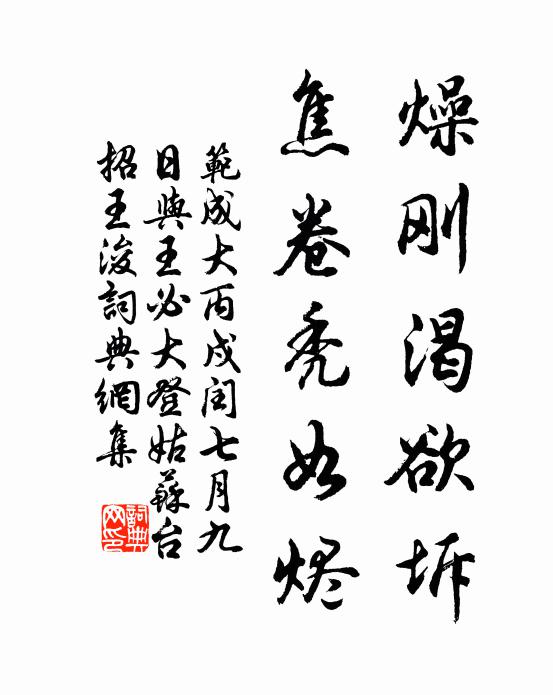 燥刚渴欲坼
焦卷秃如烬
範成大丙戌闰七月九
日與王必大登姑蘇台
招王浚詞典網集
詞典网印